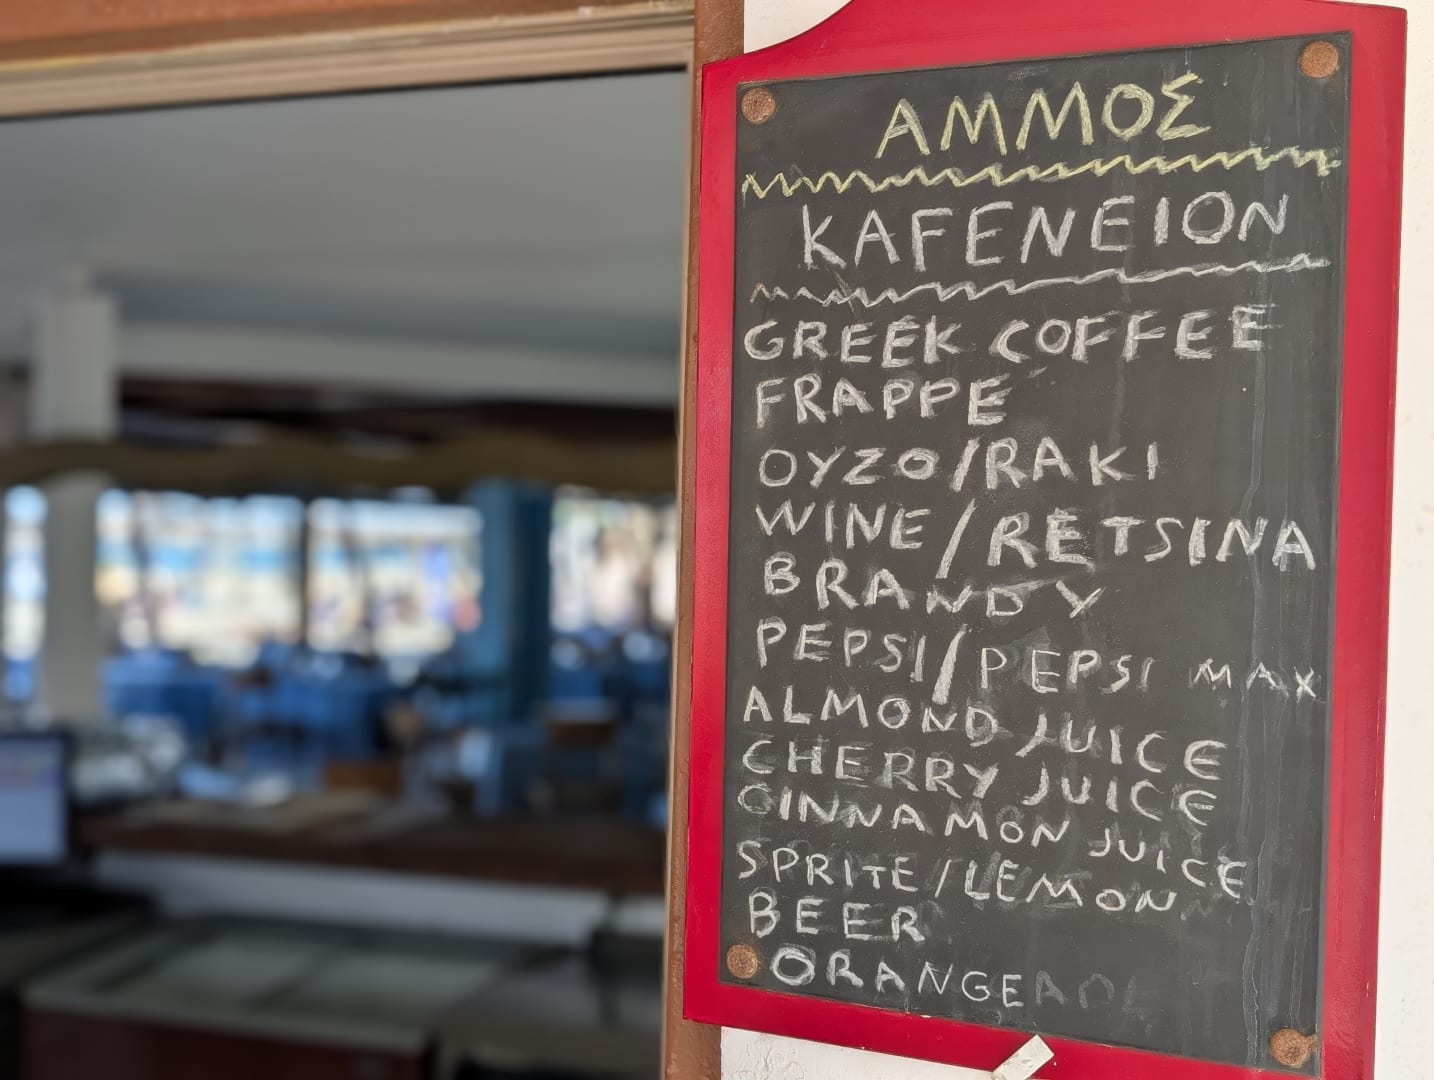 ΑΜΜΟΣ
KAFENEION
GREEK COFFEE
FRAPPE
OYZO/RAKI
WINE/RETSINA
BRANDY
PEPSI/PEPSI MAX
ALMOND JUICE
CHERRY JUICE
CINNAMON JUICE
SPRITE/LEMON
BEER
ORANGE